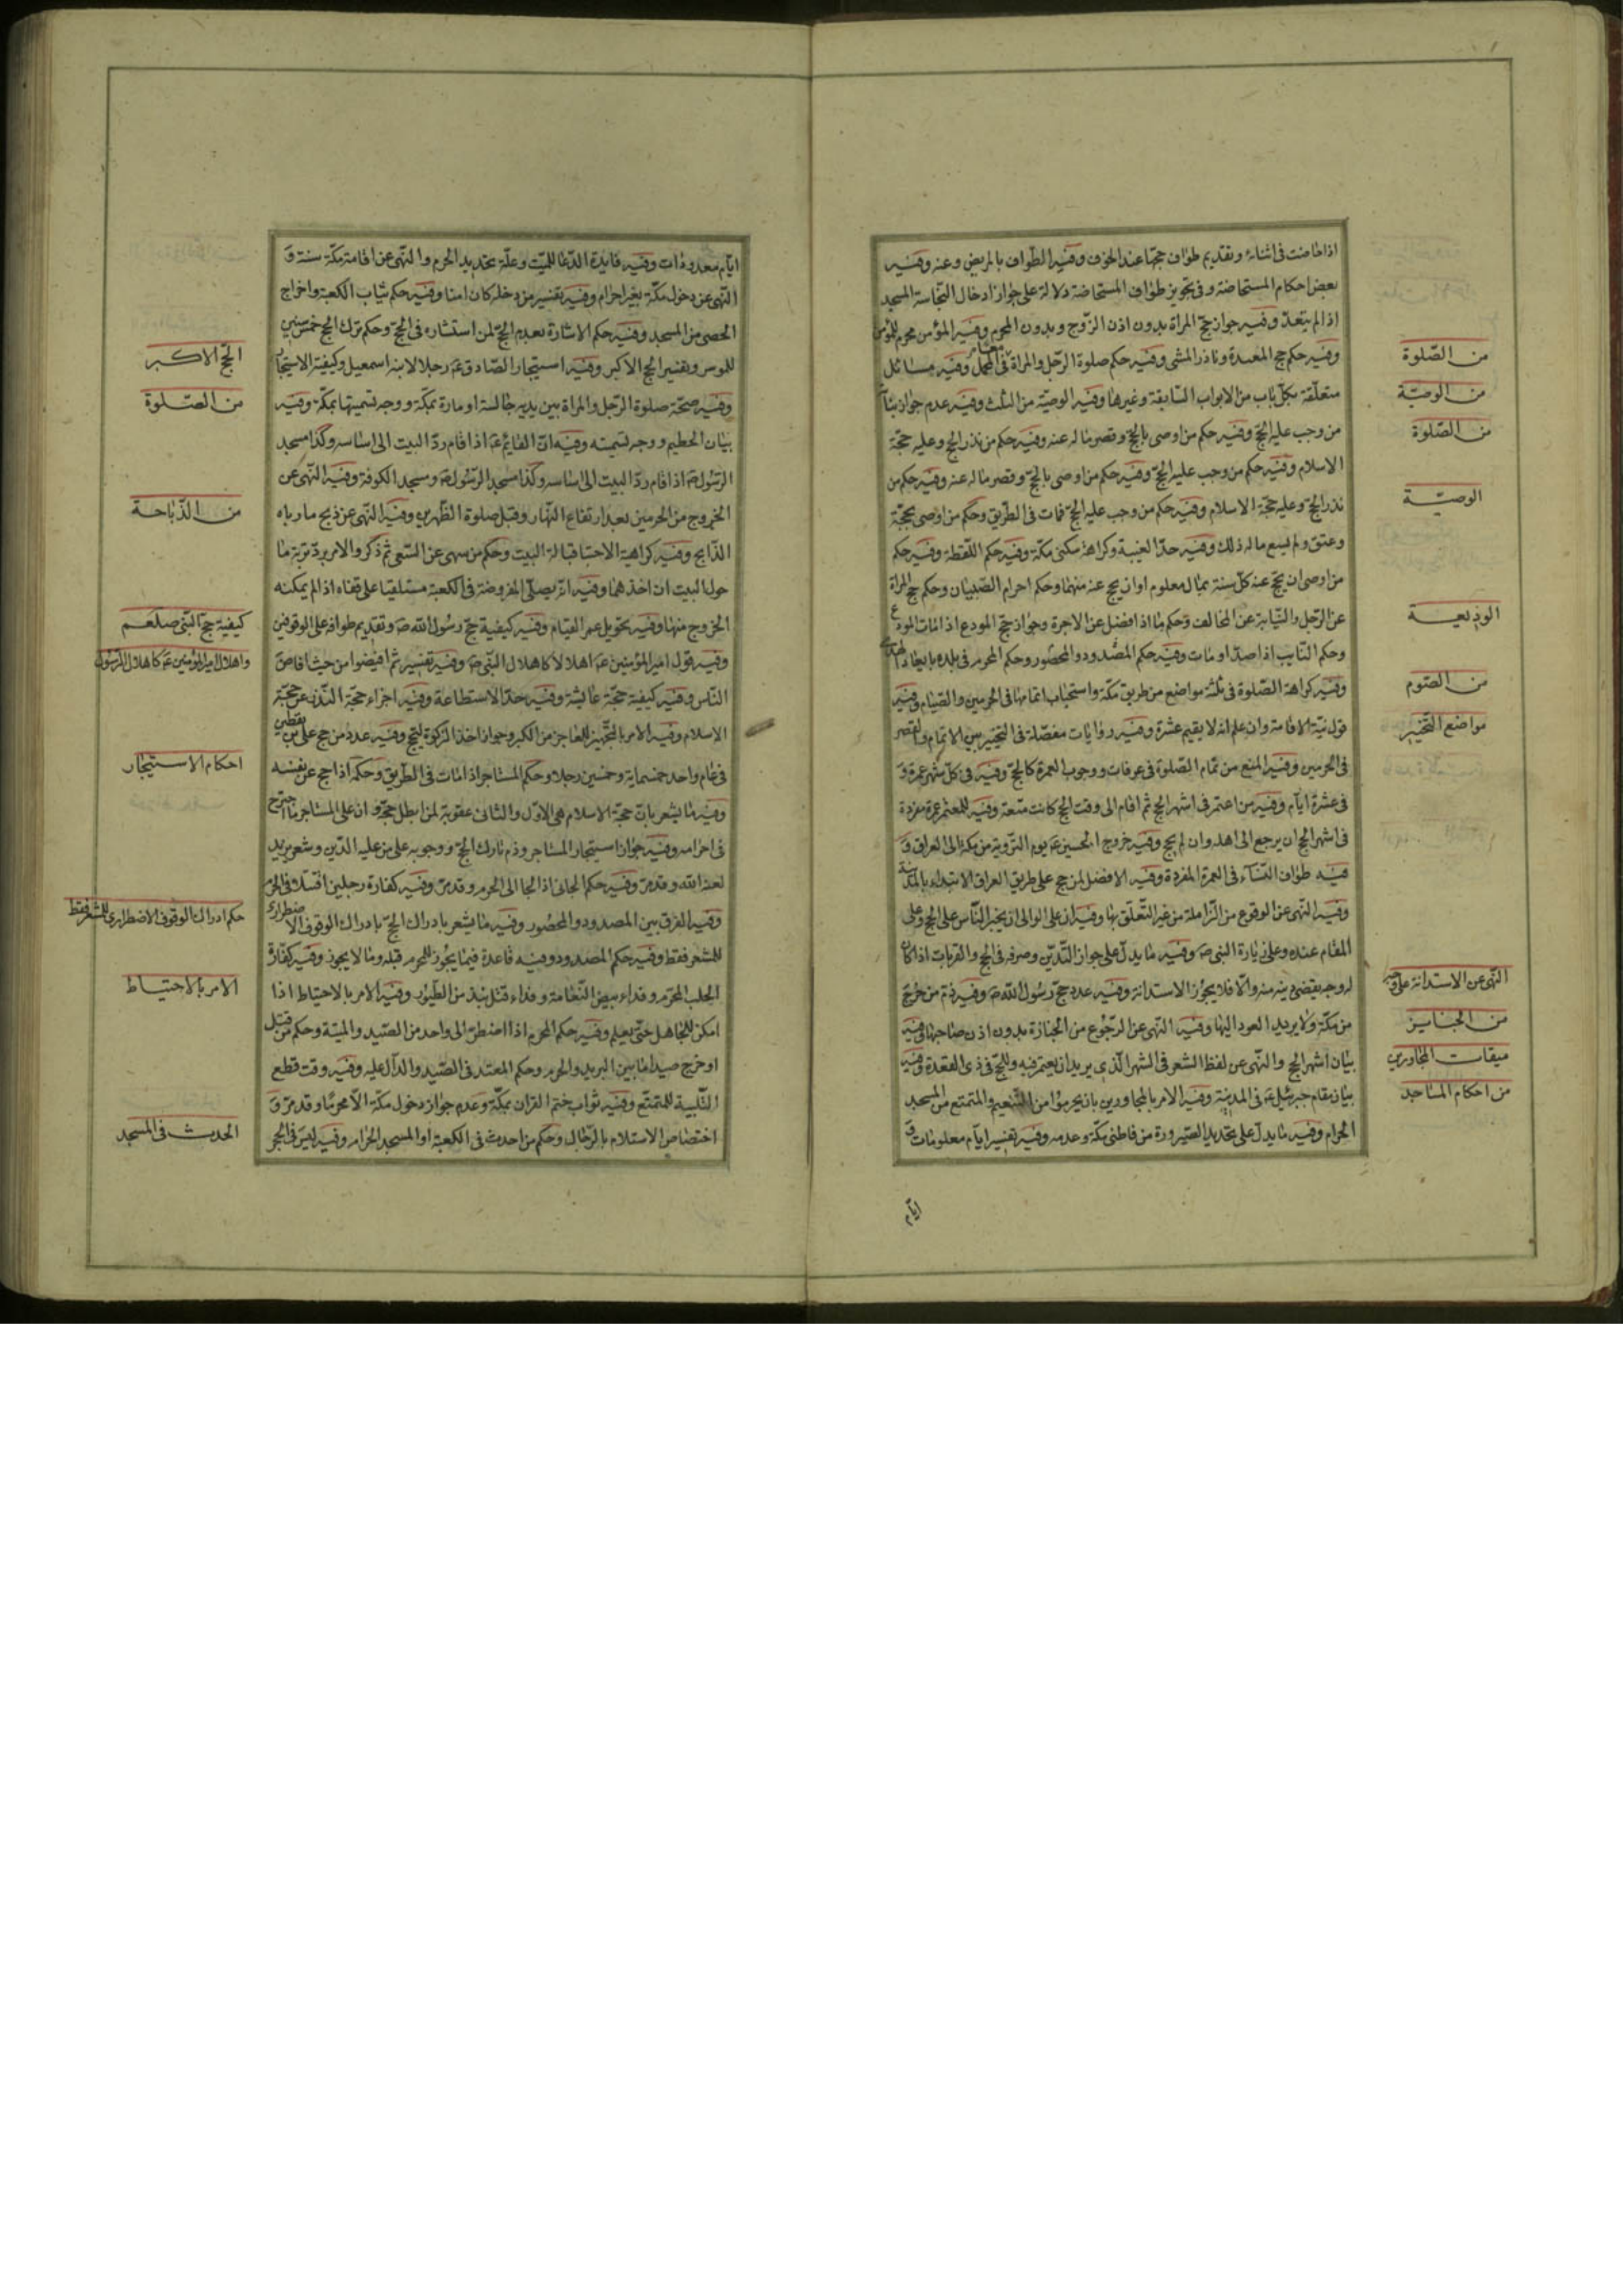 اذا حاضت فى اثنائه وتقديم طواف حجها عند الخوف وفيه الطواف بالمريض وعنه وفيه
بعض احكام المستحاضة وفى تجويز طواف المستحاضة دلالة على جواز ادخال النجاسة المسجد
اذا لم يتعد وفيه جواز حج المراة بدون اذن الزوج وبدون المحرم وفيه المؤمن محرم للمؤمن
وفيه حكم حج المعتدة وناذر المشى وفيه حكم صلوة الرجل والمراة فى المحمل وفيه مسائل
متعلقة بكل باب من الابواب السابقة وغيرها وفيه الوصية من الثلث وفيه عدم جواز
من وجب عليه الحج وفيه حكم من اوصى بالحج وقصر ماله عنه وفيه حكم من نذر الحج وعليه حجة
الاسلام وفيه حكم من وجب عليه الحج وفيه حكم من اوصى بالحج وقصر ماله عنه وفيه حكم من
نذر الحج وعليه حجة الاسلام وفيه حكم من وجب عليه الحج فمات فى الطريق وحكم من اوصى بحجة
وعتق ولم يسع ماله ذلك وفيه حد الغيبة وكراهة سكنى مكة وفيه حكم اللقطة وفيه حكم
من اوصى ان يحج عنه كل سنة بمال معلوم او ان يحج عنه منهما وحكم احرام الصبيان وحكم حج المراة
عن الرجل والنيابة عن المخالف وحكم ما اذا فضل عن الاجرة وجواز حج المودع اذا مات المودع
وحكم النايب اذا صد او مات وفيه حكم المصدود والمحصور وحكم المحرم فى بلده بابعاد الهدى
وفيه كراهة الصلوة فى ثلثة مواضع من طريق مكة واستحباب اتمامها فى الحرمين والصيام وفيه
قول نية الاقامة وان علم انه لا يقيم عشرة وفيه روايات مفصلة فى التخيير بين الاتمام والقصر
فى الحرمين وفيه المنع من تمام الصلوة فى عرفات ووجوب العمرة كالحج وفيه فى كل شهر عمرة و
فى عشرة ايام وفيه من اعتمر فى اشهر الحج ثم اقام الى وقت الحج كانت متعة وفيه للمعتمر عمرة مفردة
فى اشهر الحج ان يرجع الى اهله وان لم يحج وفيه خروج الحسين ع يوم التروية من مكة الى العراق و
فيه طواف النساء فى العمرة المفردة وفيه الافضل لمن حج على طريق العراق الابتداء بالمدينة
وفيه النهى عن الوقوع من الزاملة من غير التعلق بها وفيه ان على الوالى ان يجبر الناس على الحج وعلى
المقام عنده وعلى زيارة النبى ص وفيه ما يدل على جواز التدين وصرفه فى الحج والقربات اذا كان
له وجه يقضى دينه منه والا فلا يجوز الاستدانة وفيه عدد حج رسول الله ص وفيه ذم من خرج
من مكة ولا يريد العود اليها وفيه النهى عن الرجوع من الجنازة بدون اذن صاحبها وفيه
بيان اشهر الحج والنهى عن لفظ الشعر فى الشهر الذى يريد ان يعتمر فيه وللحج فى ذى القعدة وفيه
بيان مقام جبرئيل ع فى المدينة وفيه الامر بالمجاورين بان يحرموا من التنعيم والمتمتع من المسجد
الحرام وفيه ما يدل على تحديد الصيرورة من قاطنى مكة وعدمه وفيه تفسير ايام معلومات و
ايام
من الصلوة
من الوصية
من الصلوة
الوصية
الوديعية
من الصوم
مواضع التخيير
النهى عن الاستدانة على
من الجنايز
ميقات المجاورين
من احكام المساجد
ايام معدودات وفيه فايدة الدعا للميت وعلة تحديد الحرم والنهى عن اقامة مكة سنة و
النهى عن دخول مكة بغير احرام وفيه تفسير من دخله كان امنا وفيه حكم ثياب الكعبة واخراج
الحصى من المسجد وفيه حكم الاشارة بعدم الحج لمن استشاره فى الحج وحكم ترك الحج خمس سنين
للموسر وتفسير الحج الاكبر وفيه استيجار الصادق ع رجلا لابنه اسمعيل وكيفية الاستيجار
وفيه صحة صلوة الرجل والمراة بين يديه جالسة او مارة بمكة ووجه تسميتها بمكة وفيه
بيان الحطيم ووجه تسميته وفيه ان القائم ع اذا قام رد البيت الى اساسه وكذا مسجد
الرسول ص اذا قام رد البيت الى اساسه وكذا مسجد الرسول ص ومسجد الكوفة وفيه النهى عن
الخروج من الحرمين بعد ارتفاع النهار وقبل صلوة الظهرين وفيه النهى عن ذبح ما رباه
الذابح وفيه كراهية الاحتبا قبالة البيت وحكم من سهى عن السعى ثم ذكر والامر برد تربة ما
حول البيت ان اخذ هما وفيه انه يصلى المفروضة فى الكعبة مستلقيا على قفاه اذا لم يمكنه
الخروج منها وفيه تحويل عمر المقام وفيه كيفية حج رسول الله ص وتقديم طوافه على الوقوفين
وفيه قول امير المؤمنين ع اهلالا كاهلال النبى ص وفيه تفسير ثم افيضوا من حيث افاض
الناس وفيه كيفية حجة عايشة وفيه حد الاستطاعة وفيه اجزاء حجة النذر عن حجة
الاسلام وفيه الامر بالتجهيز للعاجز من الكبر وجواز اخذ الزكوة للحج وفيه عدد من حج على بن يقطين
فى عام واحد خمسماية وخمسين رجلا وحكم المستاجر اذا مات فى الطريق وحكمه اذا حج عن نفسه
وفيه ما يشعر بان حجة الاسلام هى الاول والثانى عقوبة لمن ابطل حجه وان على المستاجر ما اجترح
فى احرامه وفيه جواز استيجار المستاجر وذم تارك الحج ووجوبه على من عليه الدين وشعر يزيد
لعنه الله وقد مر وفيه حكم الجانى اذا لجا الى الحرم وقد مر وفيه كفارة رجلين اقتتلا فى الحرم
وفيه الفرق بين المصدود والمحصور وفيه ما يشعر بادراك الحج بادراك الوقوف الاضطرارى
للمشعر فقط وفيه حكم المصدود وفيه قاعدة فيما يجوز للمحرم قبله وما لا يجوز وفيه كفارة
الجلب المحرم وفداء بيض النعامة وفداء قتل نبذ من الطيور وفيه الامر بالاحتياط اذا
امكن للجاهل حتى يعلم وفيه حكم المحرم اذا اضطر الى واحد من الصيد والميتة وحكم من قتل
او خرج صيدا ما بين البريد والحرم وحكم المعتد فى الصيد والدال عليه وفيه وقت قطع
التلبية للمتمتع وفيه ثواب ختم القران بمكة وعدم جواز دخول مكة الا محرما وقد مر و
اختصاص الاستلام بالرجال وحكم من احدث فى الكعبة او المسجد الحرام وفيه ليس فى الحجر
الحج الاكبر
من الصلوة
من الذباحة
كيفية حج النبى صلعم
واهلال امير المؤمنين ع كاهلال الرسول
احكام الاستيجار
حكم ادراك الوقوف الاضطرارى للمشعر فقط
الامر بالاحتياط
الحدث فى المسجد